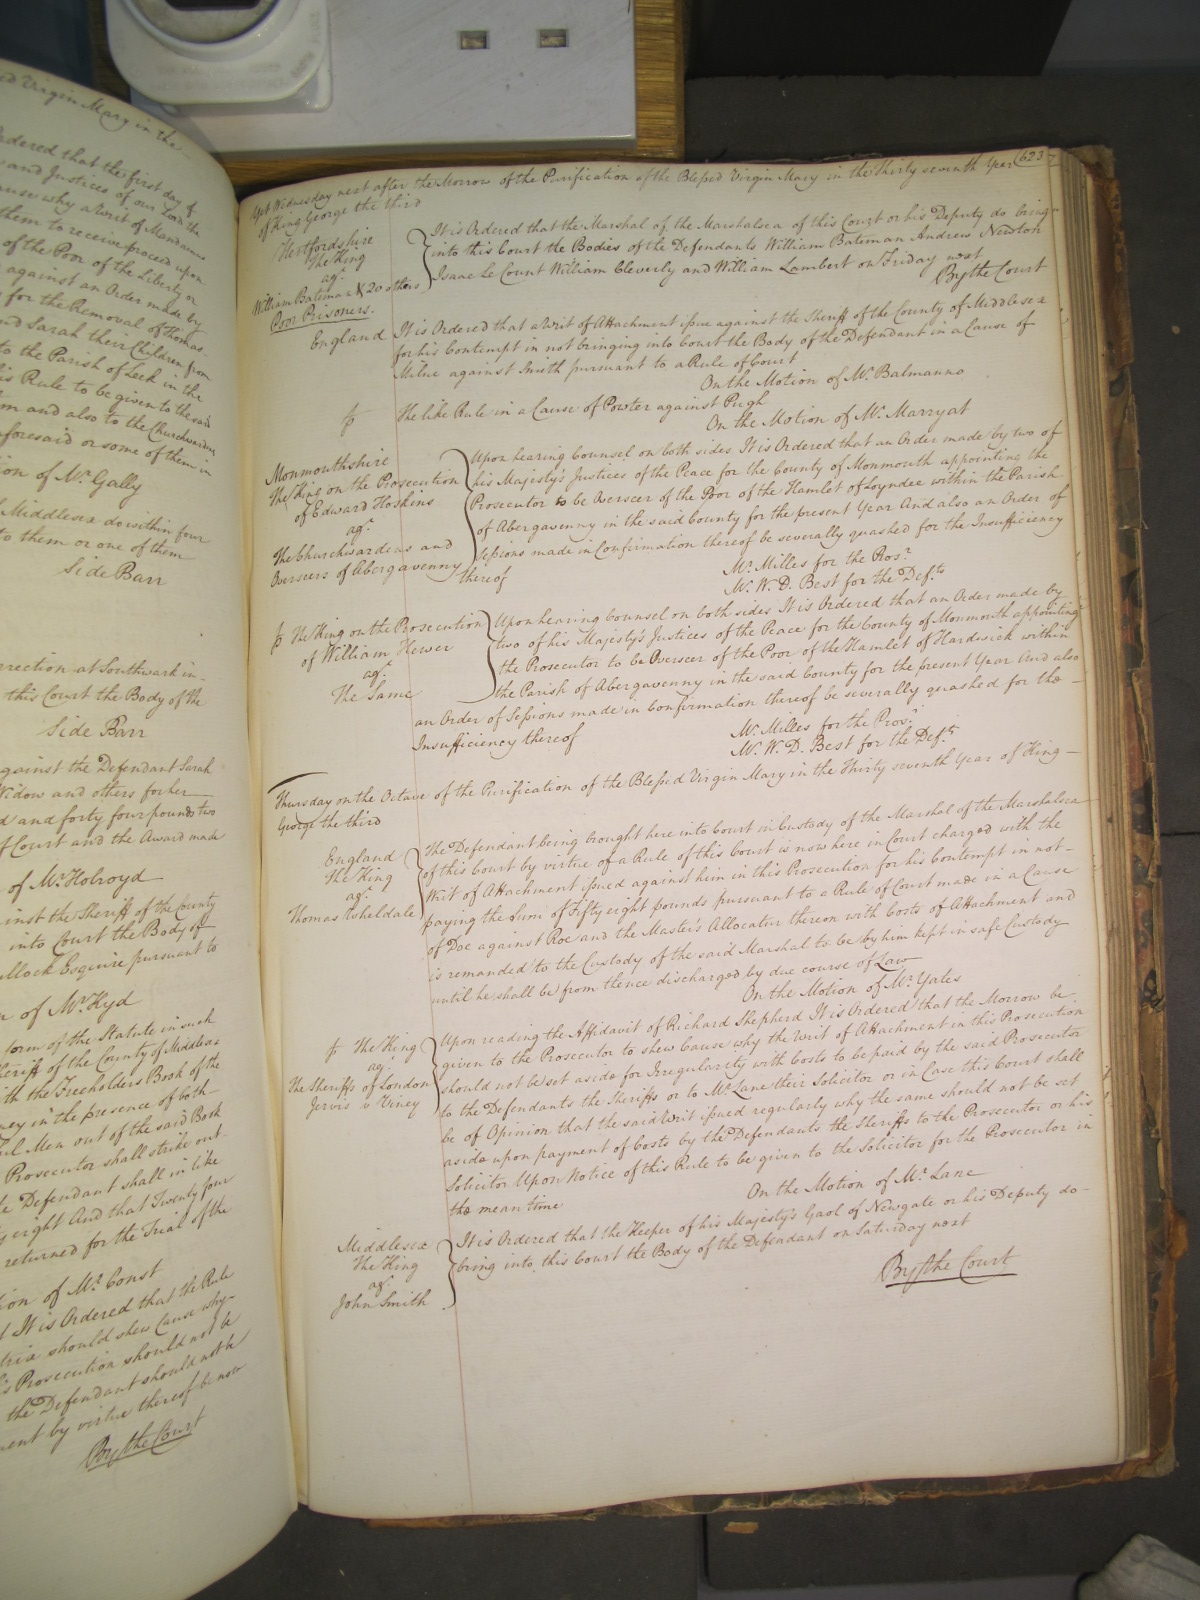 ed Virgin Mary in the
Ordered that the first day of
and Justices of our Lord the
cause why a Writ of Mandamus
them to receive proceed upon
of the Poor of the Liberty or
against an Order made by
for the Removal of Thomas
and Sarah their Children from
to the Parish of Leek in the
is Rule to be given to the said
m and also to the Churchwardens
aforesaid or some of them in
ion of Mr. Gally
Middlesex do within four
to them or one of them
Side Barr
rrection at Southwark in
this Court the Body of the
Side Barr
against the Defendant Sarah
Widow and others for her
d and forty four pounds two
f Court and the Award made
of Mr. Holroyd
inst the Sheriff of the County
into Court the Body of
llock Esquire pursuant to
n of Mr. Kyd
form of the Statute in such
Sheriff of the County of Middlesex
ith the Freeholders Book of the
ney in the presence of both
ul Men out of the said Book
Prosecutor shall strike out
he Defendant shall in like
s eight And that Twenty four
returned for the Trial of the
ion of Mr. Const
d It is Ordered that the Rule
trix should shew Cause why
is Prosecution should not be
the Defendant should not be
ment by virtue thereof be now
By the Court
623
Yet Wednesday next after the Morrow of the Purification of the Blessed Virgin Mary in the Thirty seventh Year
of King George the third
Hertfordshire
The King
agt.
William Bateman & 20 others
Poor Prisoners.
It is Ordered that the Marshal of the Marshalsea of this Court or his Deputy do bring
into this Court the Bodies of the Defendants William Bateman Andrew Newton
Isaac Le Count William Cleverly and William Lambert on Friday next
By the Court
England It is Ordered that a Writ of Attachment issue against the Sheriff of the County of Middlesex
for his Contempt in not bringing into Court the Body of the Defendant in a Cause of
Milne against Smith pursuant to a Rule of Court
On the Motion of Mr. Balmanno
The like Rule in a Cause of Powter against Pugh
On the Motion of Mr. Marryat
Monmouthshire
The King on the Prosecution
of Edward Hoskins
agt.
The Churchwardens and
Overseers of Abergavenny
Upon hearing Counsel on both sides It is Ordered that an Order made by two of
his Majesty's Justices of the Peace for the County of Monmouth appointing the
Prosecutor to be Overseer of the Poor of the Hamlet of Loyndee within the Parish
of Abergavenny in the said County for the present Year And also an Order of
Sessions made in Confirmation thereof be severally quashed for the Insufficiency
thereof
Mr. Milles for the Prosr.
Mr. W. D. Best for the Defts.
The King on the Prosecution
of William Hewer
agt.
The Same
Upon hearing Counsel on both sides It is Ordered that an Order made by
two of his Majesty's Justices of the Peace for the County of Monmouth appointing
the Prosecutor to be Overseer of the Poor of the Hamlet of Hardwick within
the Parish of Abergavenny in the said County for the present Year And also
an Order of Sessions made in Confirmation thereof be severally quashed for the
Insufficiency thereof
Mr. Milles for the Prosr.
Mr. W. D. Best for the Defts.
Thursday on the Octave of the Purification of the Blessed Virgin Mary in the Thirty seventh Year of King
George the third
England
The King
agt.
Thomas Wheldale
The Defendant being brought here into Court in Custody of the Marshal of the Marshalsea
of this Court by virtue of a Rule of this Court is now here in Court charged with the
Writ of Attachment issued against him in this Prosecution for his Contempt in not
paying the Sum of Fifty eight pounds pursuant to a Rule of Court made in a Cause
of Doe against Roe and the Master's Allocatur thereon with Costs of Attachment and
is remanded to the Custody of the said Marshal to be by him kept in safe Custody
until he shall be from thence discharged by due course of Law
On the Motion of Mr. Yates
The King
agt.
The Sheriffs of London
Jervis v Viney
Upon reading the Affidavit of Richard Shepherd It is Ordered that the Morrow be
given to the Prosecutor to shew Cause why the Writ of Attachment in this Prosecution
should not be set aside for Irregularity with Costs to be paid by the said Prosecutor
to the Defendants the Sheriffs or to Mr. Lane their Solicitor or in Case this Court shall
be of Opinion that the said Writ issued regularly why the same should not be set
aside upon payment of Costs by the Defendants the Sheriffs to the Prosecutor or his
Solicitor Upon Notice of this Rule to be given to the Solicitor for the Prosecutor in
the mean time
On the Motion of Mr. Lane
Middlesex
The King
agt.
John Smith
It is Ordered that the Keeper of his Majesty's Gaol of Newgate or his Deputy do
bring into this Court the Body of the Defendant on Saturday next
By the Court